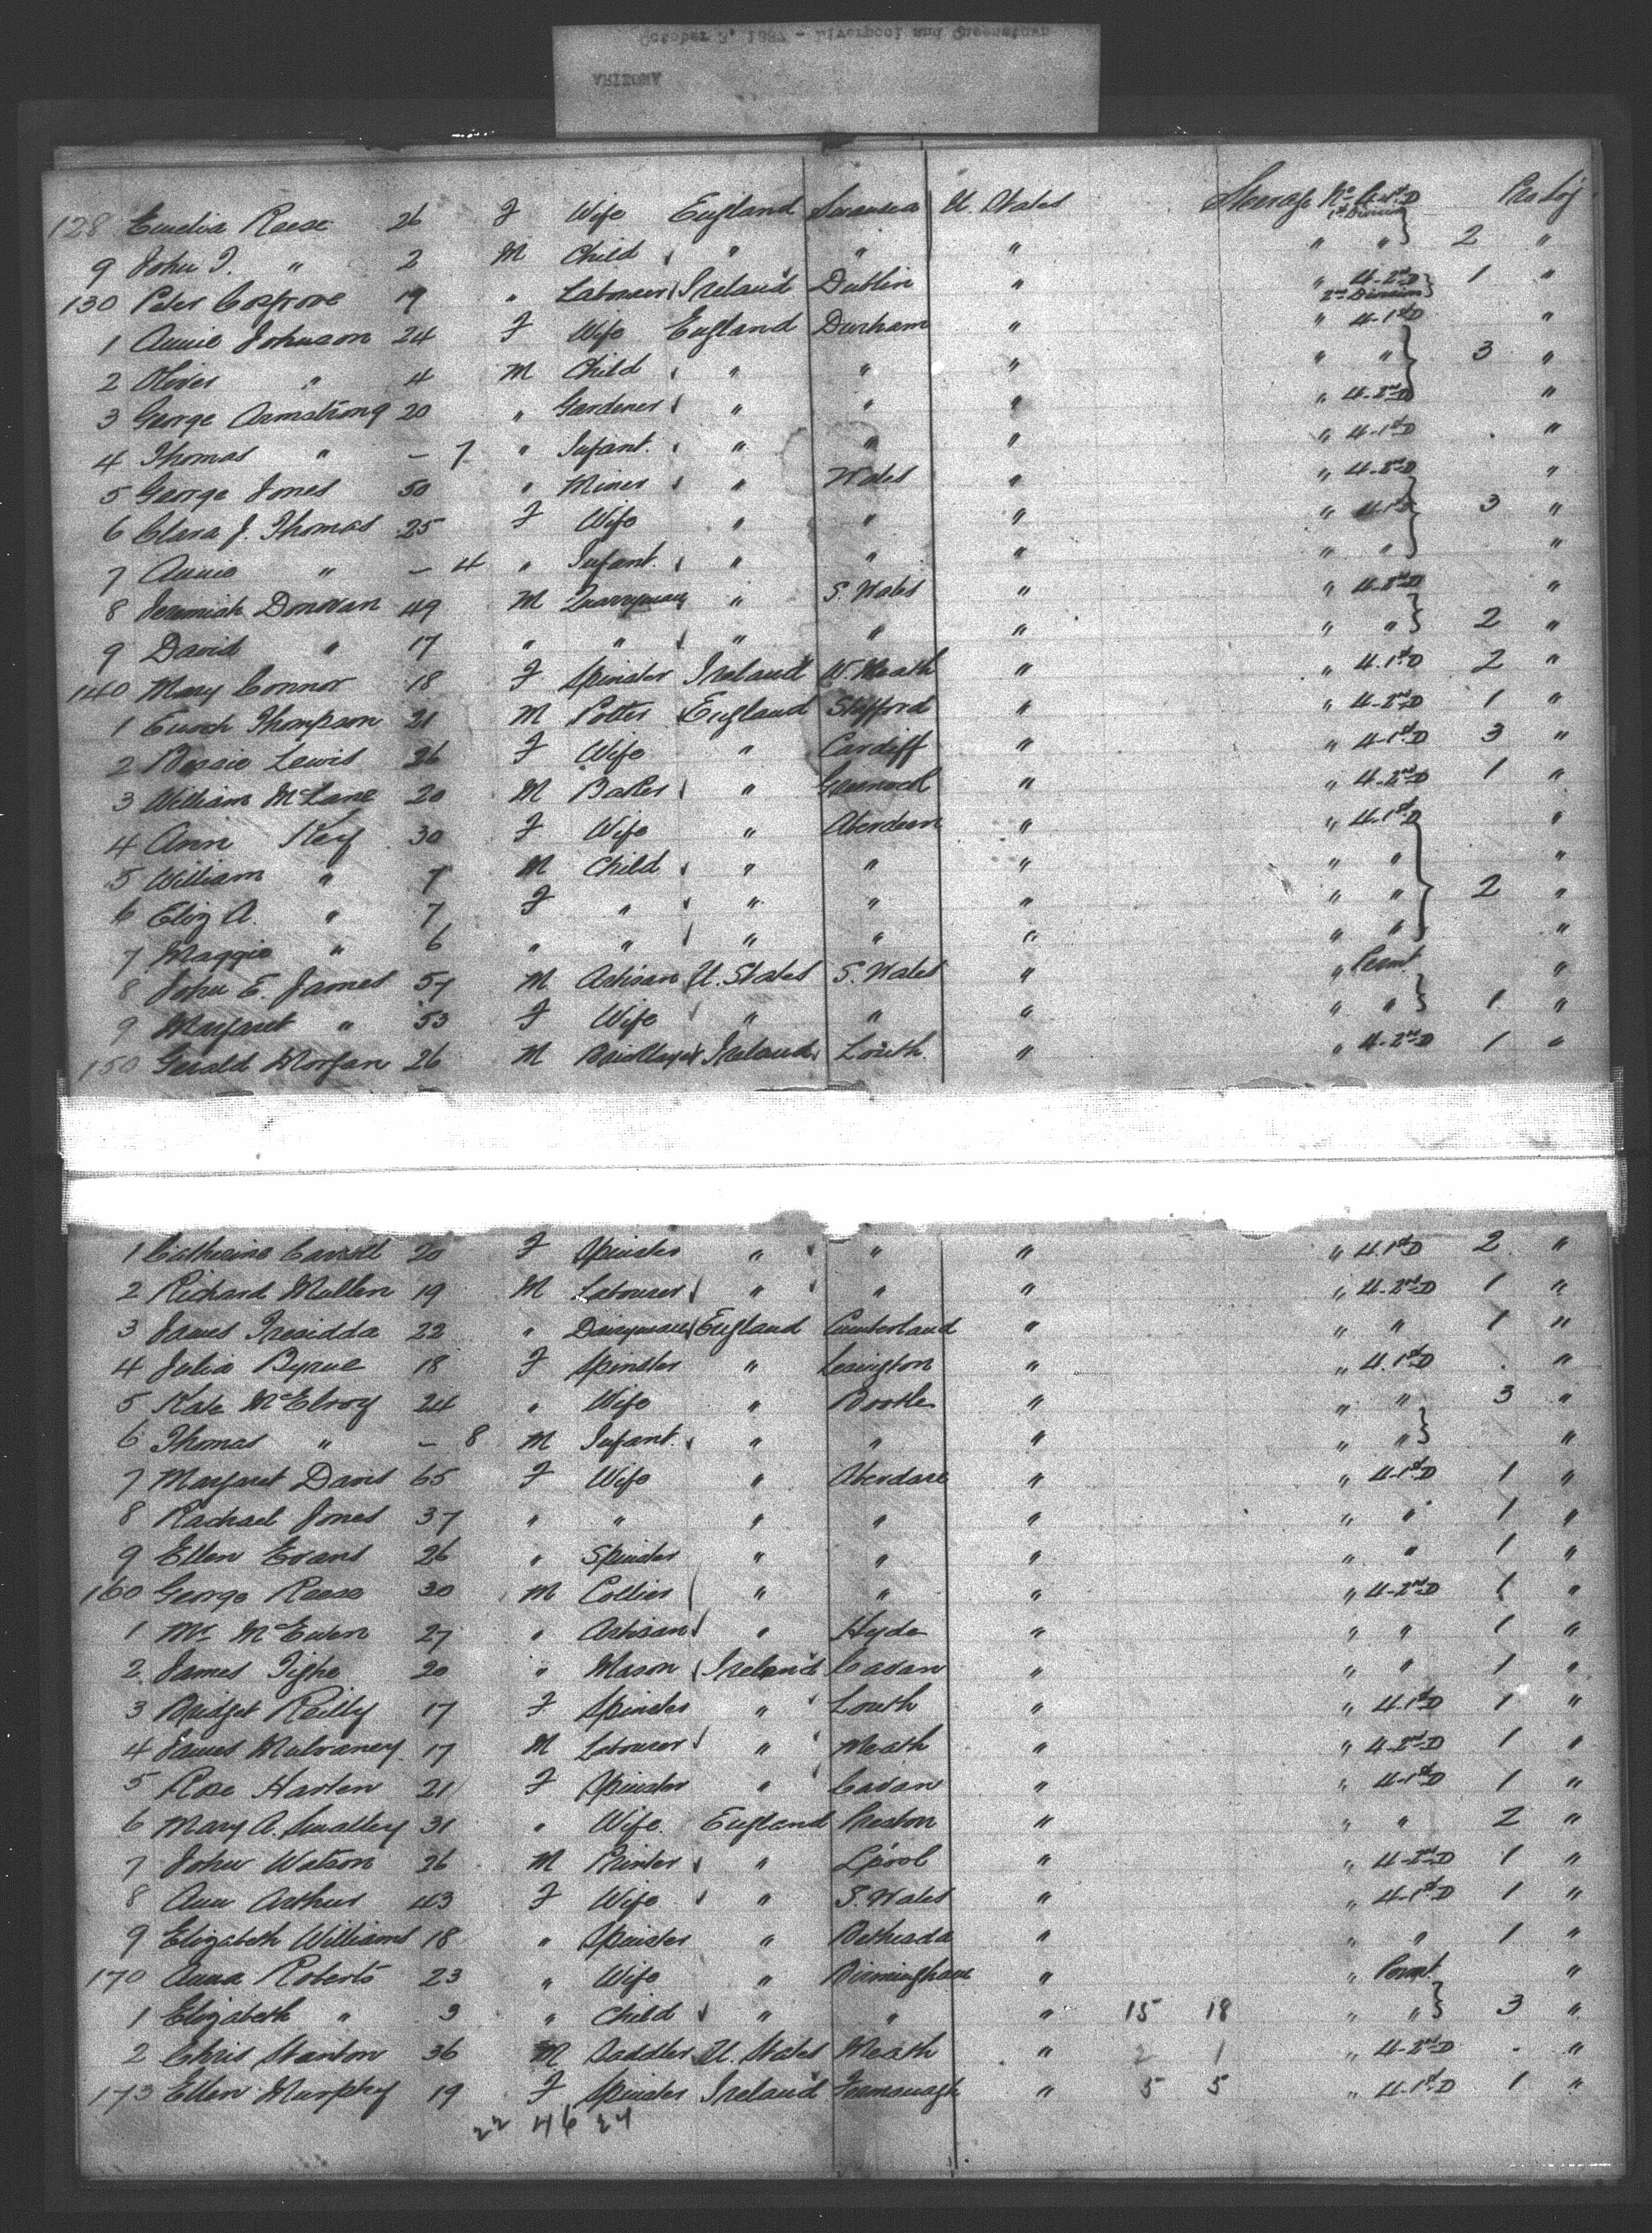 October 3, 1887 - Liverpool and Queenstown
ARIZONA
128 Emelia Reese 26 F Wife England Swansea U. States Steerage No 4 1st D 1st Division Pro Loj
9 John T. " 2 M Child " " " " " 2 "
130 Peter Cosgrove 19 " Labourer Ireland Dublin " " 4-2nd D 2nd Division 1 "
1 Annie Johnson 24 F Wife England Durham " " 4-1st D "
2 Oliver " 4 M Child " " " " " 3 "
3 George Armstrong 20 " Gardener " " " " 4-2nd D "
4 Thomas " - 7 " Infant. " " " " 4-1st D . "
5 George Jones 50 " Miner " Wales " " 4-2nd D "
6 Clara J. Thomas 25 F Wife " " " " 4-1st D 3 "
7 Annie " - 4 " Infant. " " " " " "
8 Jeremiah Donovan 49 M Quarryman " S. Wales " " 4-2nd D "
9 David " 17 " " " " " " " 2 "
140 Mary Connor 18 F Spinster Ireland W. Meath " " 4-1st D 2 "
1 Enoch Thompson 21 M Potter England Stafford " " 4-2nd D 1 "
2 Bessie Lewis 26 F Wife " Cardiff " " 4-1st D 3 "
3 William McLane 20 M Baker " Greenock " " 4-2nd D 1 "
4 Ann Key 30 F Wife " Aberdeen " " 4-1st D "
5 William " 7 M Child " " " " " "
6 Eliz A. " 7 F " " " " " " 2 "
7 Maggie " 6 " " " " " " " "
8 John E. James 57 M Artisan U. States S. Wales " " Permt. "
9 Margaret " 53 F Wife " " " " " 1 "
150 Gerald Morgan 26 M Bricklayer Ireland Louth " " 4-2nd D 1 "
1 Catherine Carroll 20 F Spinster " " " " 4-1st D 2 "
2 Richard Mullen 19 M Labourer " " " " 4-2nd D 1 "
3 James Tresidda 22 " Dairyman England Cumberland " " " 1 "
4 Julia Byrne 18 F Spinster " Leaington " " 4-1st D . "
5 Kate McElroy 24 " Wife " Bootle " " " 3 "
6 Thomas " - 8 M Infant. " " " " " "
7 Margaret Davis 65 F Wife " Aberdare " " 4-1st D 1 "
8 Rachael Jones 37 " " " " " " " 1 "
9 Ellen Evans 26 " Spinster " " " " " 1 "
160 George Reese 30 M Collier " " " " 4-2nd D 1 "
1 Mr McEwen 27 " Artisan " Hyde " " " 1 "
2 James Tighe 20 " Mason Ireland Cavan " " " 1 "
3 Bridget Reilly 17 F Spinster " Louth " " 4-1st D 1 "
4 James Mulvaney 17 M Labourer " Meath " " 4-2nd D 1 "
5 Rose Harten 21 F Spinster " Cavan " " 4-1st D 1 "
6 Mary A. Smalley 31 " Wife England Preston " " " 2 "
7 John Watson 26 M Printer " L'pool " " 4-2nd D 1 "
8 Ann Arthur 43 F Wife " S. Wales " " 4-1st D 1 "
9 Elizabeth Williams 18 " Spinster " Bethesda " " " 1 "
170 Anna Roberts 23 " Wife " Birmingham " " Permt. "
1 Elizabeth " 3 " Child " " " 15 18 " " 3 "
2 Chris Stanton 36 M Saddler U. States Meath " 2 1 " 4-2nd D - "
173 Ellen Murphy 19 F Spinster Ireland Fermanagh " 5 5 " 4-1st D 1 "
22 46 24